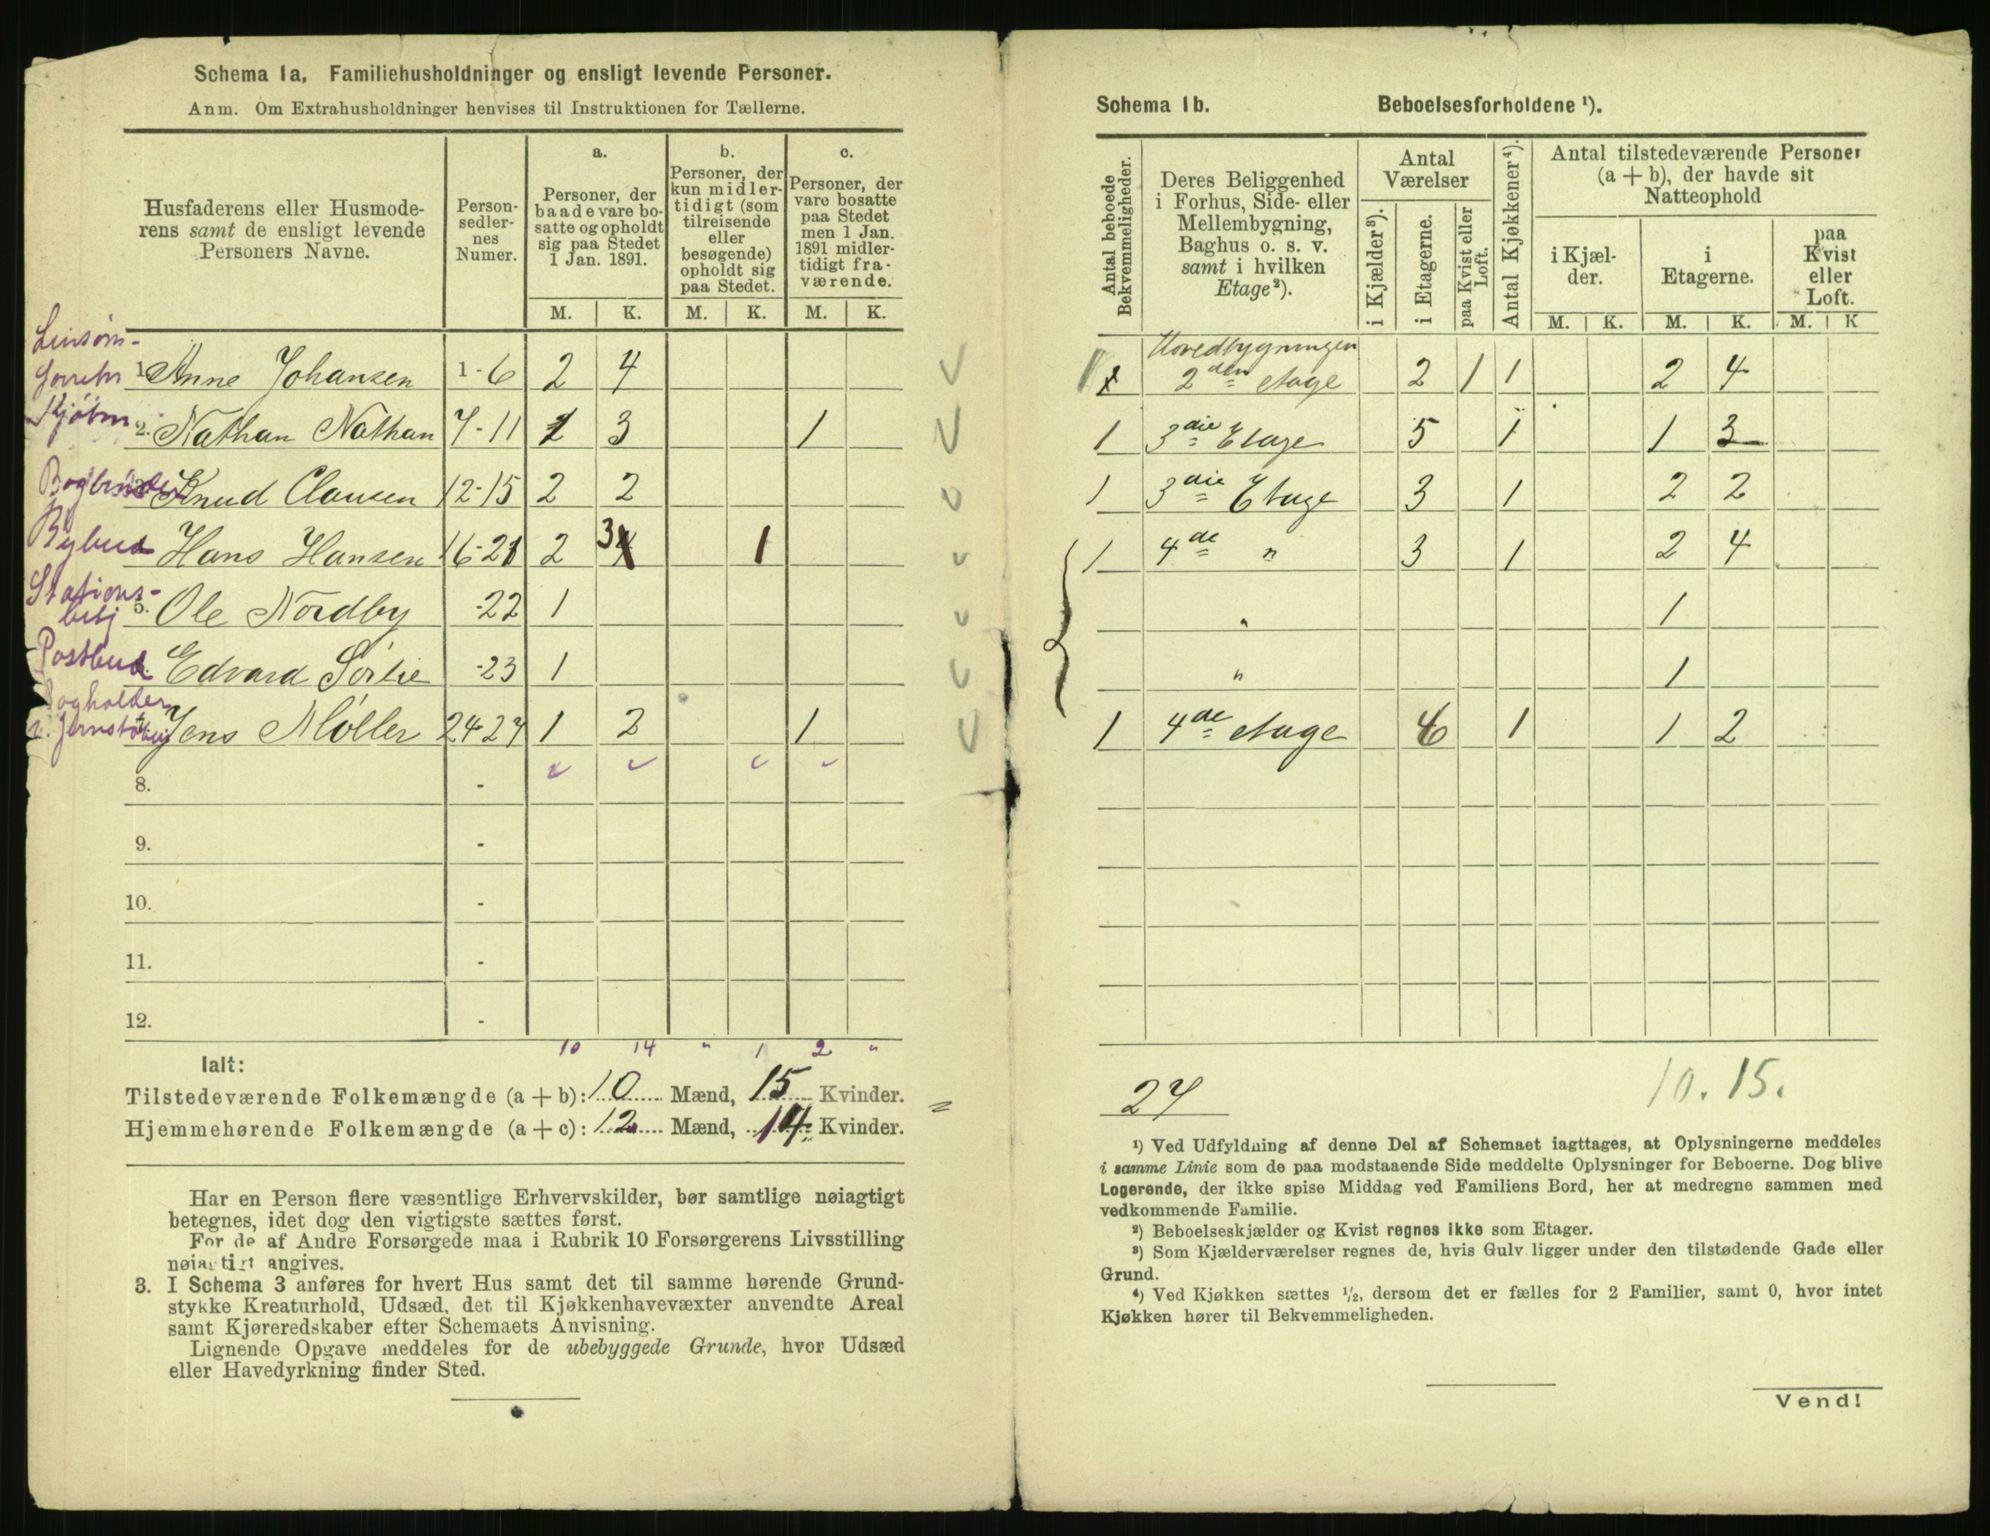 Schema 1a, Familiehusholdninger og ensligt levende Personer.
Anm. Om Extrahusholdninger henvises til Instruktionen for Tællerne.
Husfaderens eller Husmode-
rens samt de ensligt levende
Personers Navne.
Person-
sedler-
nes
Numer.
a.
Personer, der
baade vare bo-
satte og opholdt
sig paa Stedet
1 Jan. 1891.
b.
Personer, der
kun midler-
tidigt (som
tilreisende
eller
besøgende)
opholdt sig
paa Stedet.
c.
Personer, der
vare bosatte
paa Stedet
men 1 Jan.
1891 midler-
tidigt fra-
værende.
M. K. M. K. M. K.
1. Anne Johansen 1-6 2 4
Kjøbm 2. Nathan Nathan 7-11 1 3 1
Knud Clausen 12-15 2 2
Bybud Hans Hansen 16-21 2 3 1
Stations-
betj 5. Ole Nordby -22 1
Postbud Edvard Sörlie -23 1
Bogholder
Jens Møller 24-27 1 2 1
8. -
9. -
10. -
11. -
12. -
10 14 " 1 2 "
Ialt:
Tilstedeværende Folkemængde (a + b): 10 Mænd, 15 Kvinder.
Hjemmehørende Folkemængde (a + c): 12 Mænd, 14 Kvinder.
Har en Person flere væsentlige Erhvervskilder, bør samtlige nøiagtigt
betegnes, idet dog den vigtigste sættes først.
For de af Andre Forsørgede maa i Rubrik 10 Forsørgerens Livsstilling
nøiagtigt angives.
3. I Schema 3 anføres for hvert Hus samt det til samme hørende Grund-
stykke Kreaturhold, Udsæd, det til Kjøkkenhavevæxter anvendte Areal
samt Kjøreredskaber efter Schemaets Anvisning.
Lignende Opgave meddeles for de ubebyggede Grunde, hvor Udsæd
eller Havedyrkning finder Sted.
Schema 1b. Beboelsesforholdene ¹).
Antal beboede
Bekvemmeligheder.
Deres Beliggenhed
i Forhus, Side- eller
Mellembygning,
Baghus o. s. v.
samt i hvilken
Etage²).
Antal
Værelser
i Kjælder³).
i Etagerne.
paa Kvist eller
Loft.
Antal Kjøkkener⁴).
Antal tilstedeværende Personer
(a + b), der havde sit
Natteophold
i Kjæl-
der.
i
Etagerne.
paa
Kvist
eller
Loft.
M. K. M. K. M. K
Hovedbygningen
1 2den etage 2 1 1 2 4
1 3die Etage 5 1 1 3
1 3die Etage 3 1 2 2
1 4de " 3 1 2 4
" 1
" 1
1 4de etage 6 1 1 2
27
10. 15.
¹) Ved Udfyldning af denne Del af Schemaet iagttages, at Oplysningerne meddeles
i samme Linie som de paa modstaaende Side meddelte Oplysninger for Beboerne. Dog blive
Logerende, der ikke spise Middag ved Familiens Bord, her at medregne sammen med
vedkommende Familie.
²) Beboelseskjælder og Kvist regnes ikke som Etager.
³) Som Kjælderværelser regnes de, hvis Gulv ligger under den tilstødende Gade eller
Grund.
⁴) Ved Kjøkken sættes ½, dersom det er fælles for 2 Familier, samt 0, hvor intet
Kjøkken hører til Bekvemmeligheden.
Vend!